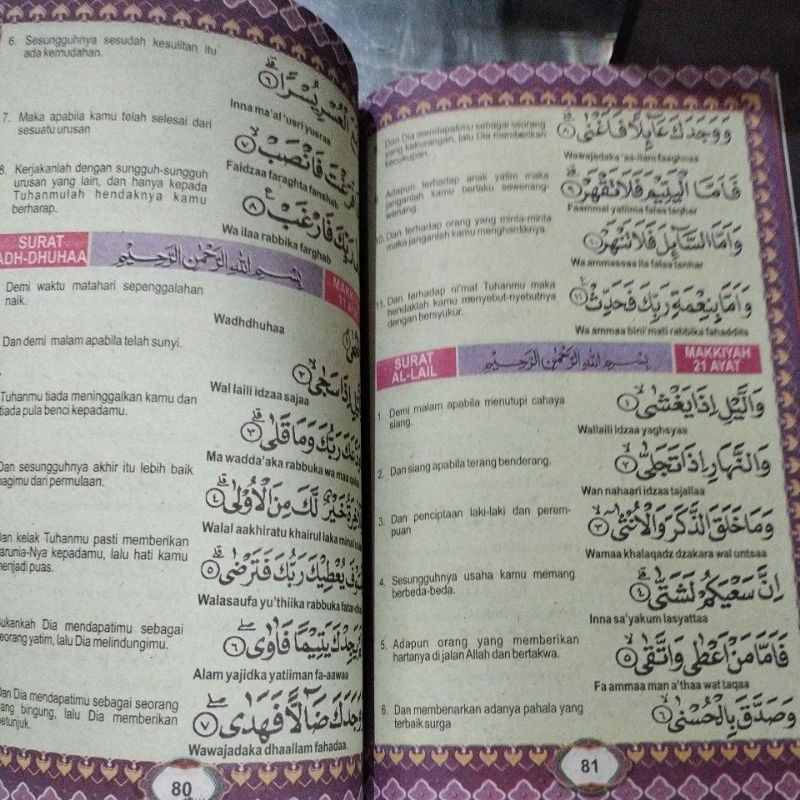 6. Sesungguhnya sesudah kesulitan itu
ada kemudahan.
الْعُسْرِ يُسْرًا ٦
Inna ma'al 'usri yusraa
7. Maka apabila kamu telah selesai dari
sesuatu urusan
فَرَغْتَ فَانْصَبْ ٧
Faidzaa faraghta fanshab
8. Kerjakanlah dengan sungguh-sungguh
urusan yang lain, dan hanya kepada
Tuhanmulah hendaknya kamu
berharap.
رَبِّكَ فَارْغَبْ ٨
Wa ilaa rabbika farghab
SURAT
ADH-DHUHAA
بِسْمِ اللهِ الرَّحْمٰنِ الرَّحِيْمِ
MAKKI
11 AYAT
Demi waktu matahari sepenggalahan
naik.
Wadhdhuhaa
Dan demi malam apabila telah sunyi.
اِذَا سَجٰى ٢
Wal laili idzaa sajaa
Tuhanmu tiada meninggalkan kamu dan
tiada pula benci kepadamu.
رَبُّكَ وَمَا قَلٰى ٣
Ma wadda'aka rabbuka wa maa qalaa
Dan sesungguhnya akhir itu lebih baik
bagimu dari permulaan.
خَيْرٌ لَّكَ مِنَ الْاُوْلٰى ٤
Walal aakhiratu khairul laka minal
Dan kelak Tuhanmu pasti memberikan
karunia-Nya kepadamu, lalu hati kamu
menjadi puas.
يُعْطِيْكَ رَبُّكَ فَتَرْضٰى ٥
Walasaufa yu'thiika rabbuka fatar
Bukankah Dia mendapatimu sebagai
seorang yatim, lalu Dia melindungimu.
يَجِدْكَ يَتِيْمًا فَاٰوٰى ٦
Alam yajidka yatiiman fa-aawaa
Dan Dia mendapatimu sebagai seorang
yang bingung, lalu Dia memberikan
petunjuk.
وَوَجَدَكَ ضَاۤلًّا فَهَدٰى ٧
Wawajadaka dhaallam fahadaa.
80
Dan Dia mendapatimu sebagai seorang
yang kekurangan, lalu Dia memberikan
kecukupan.
وَوَجَدَكَ عَاۤئِلًا فَاَغْنٰى ٨
Wawajadaka 'aa-ilam faaghnaa
Adapun terhadap anak yatim maka
janganlah kamu berlaku sewenang-
wenang.
فَاَمَّا الْيَتِيْمَ فَلَا تَقْهَرْ ٩
Faammal yatiima falaa taqhar
10. Dan terhadap orang yang minta-minta
maka janganlah kamu menghardiknya.
وَاَمَّا السَّاۤئِلَ فَلَا تَنْهَرْ ١٠
Wa ammassaa ila falaa tanhar
11. Dan terhadap ni'mat Tuhanmu maka
hendaklah kamu menyebut-nyebutnya
dengan bersyukur.
وَاَمَّا بِنِعْمَةِ رَبِّكَ فَحَدِّثْ ١١
Wa ammaa bini'mati rabbika fahaddits
SURAT
AL-LAIL
بِسْمِ اللهِ الرَّحْمٰنِ الرَّحِيْمِ
MAKKIYAH
21 AYAT
1. Demi malam apabila menutupi cahaya
siang.
وَالَّيْلِ اِذَا يَغْشٰى ١
Wallaili idzaa yaghsyaa
2. Dan siang apabila terang benderang.
وَالنَّهَارِ اِذَا تَجَلّٰى ٢
Wan nahaari idzaa tajallaa
3. Dan penciptaan laki-laki dan perem-
puan
وَمَا خَلَقَ الذَّكَرَ وَالْاُنْثٰى ٣
Wamaa khalaqadz dzakara wal untsaa
4. Sesungguhnya usaha kamu memang
berbeda-beda.
اِنَّ سَعْيَكُمْ لَشَتّٰى ٤
Inna sa'yakum lasyattaa
5. Adapun orang yang memberikan
hartanya di jalan Allah dan bertakwa.
فَاَمَّا مَنْ اَعْطٰى وَاتَّقٰى ٥
Fa ammaa man a'thaa wat taqaa
6. Dan membenarkan adanya pahala yang
terbaik surga
وَصَدَّقَ بِالْحُسْنٰى ٦
81